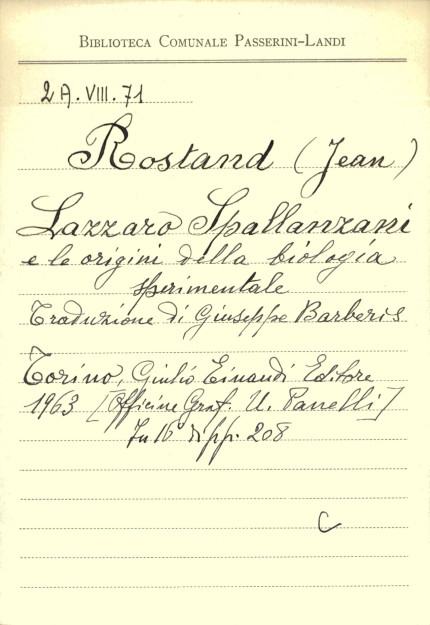 BIBLIOTECA COMUNALE PASSERINI-LANDI
2A.VIII.71
Rostand (Jean)
Lazzaro Spallanzani
e le origini della biologia
sperimentale
Traduzione di Giuseppe Barberis
Torino, Giulio Einaudi Editore
1963 [Officine Graf. U. Panelli]
In 16° di pp. 208
C